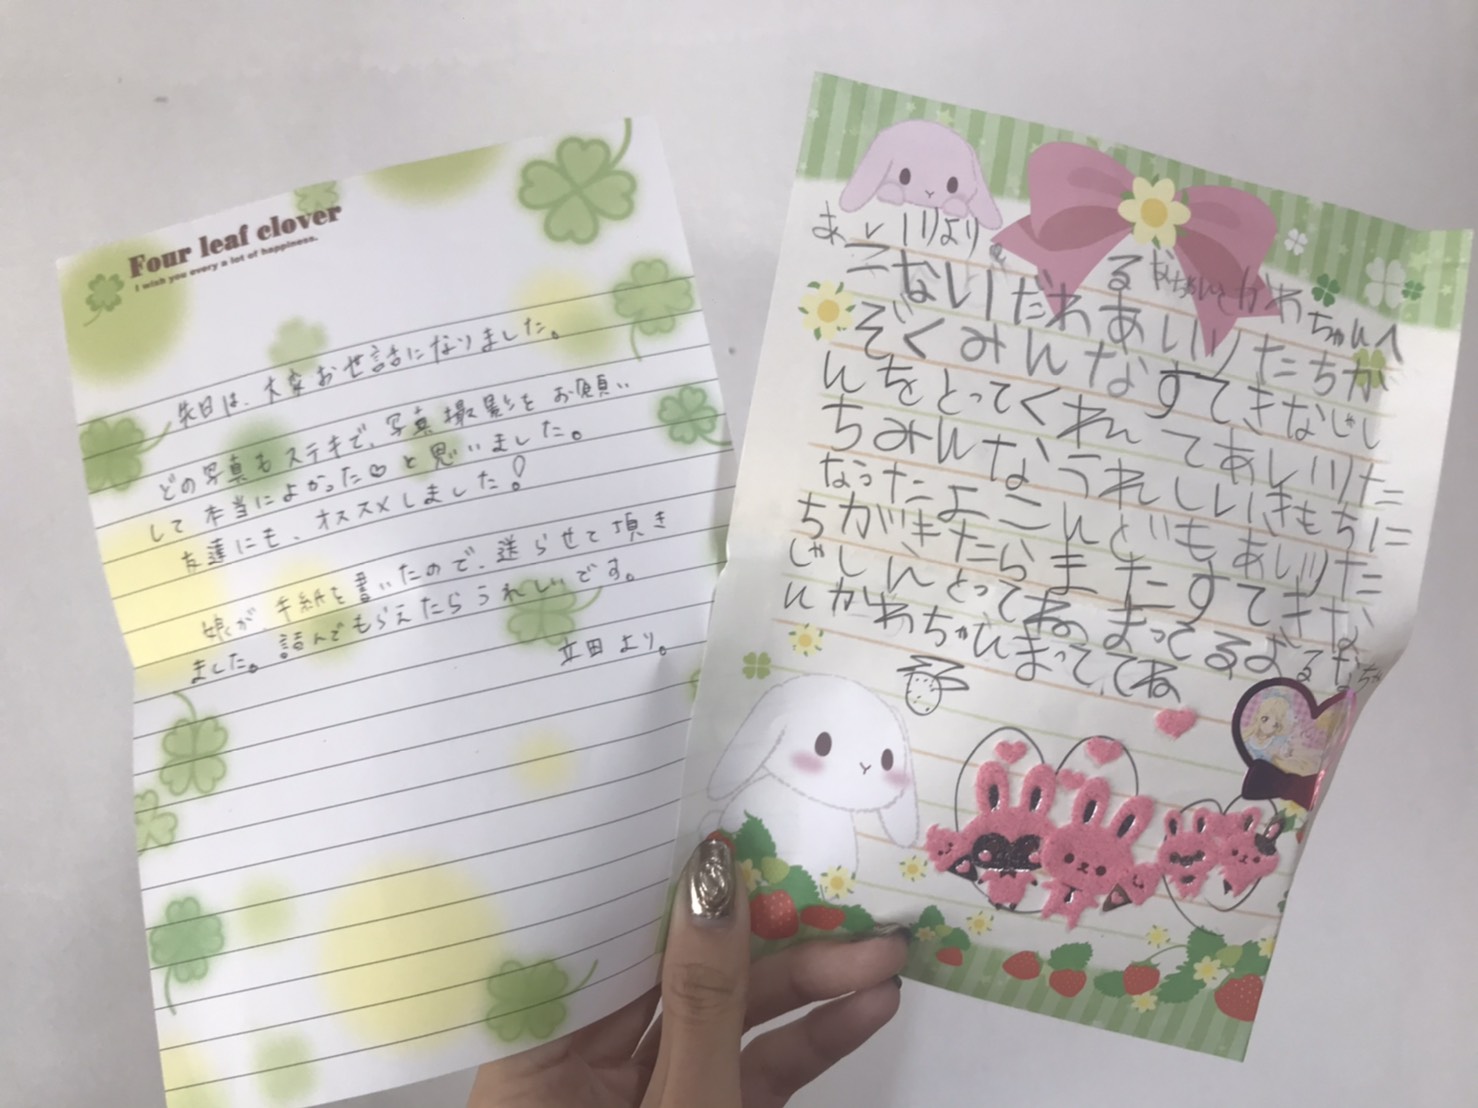 Four leaf clover
I wish you every a lot of happiness.
先日は、大変お世話になりました。
どの写真もステキで、写真撮影をお願い
して本当によかった♡と思いました。
友達にも、オススメしました!
娘が手紙を書いたので、送らせて頂き
ました。読んでもらえたらうれしいです。
立田より。
あいりより
るなちゃんとかわちゃんへ
こないだわあいりたちか
ぞくみんなすてきなしじ
んをとってくれてあいりた
ちみんなうれしいきもちに
なったよこんどもあいりた
ちがきたらまたすてきな
しじんとってねまってるよるなちゃ
んかわちゃんまっててね